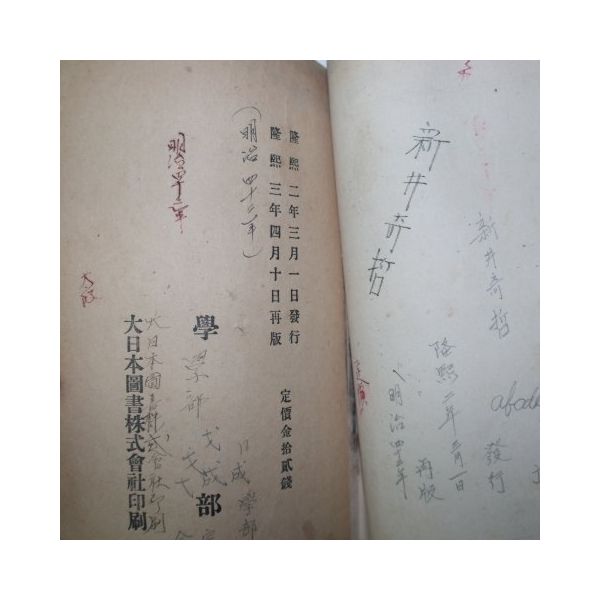 新井奇哲
新井奇哲
隆熙二年三月一日
發行
再版
(明治四十二年
abcde
隆熙二年三月一日發行
隆熙三年四月十日再版
(明治四十二年)
定價金拾貳錢
學部
學部
日成學部
大日本圖書株式會社印刷
大日本圖書株式會社印刷
明治四十二年